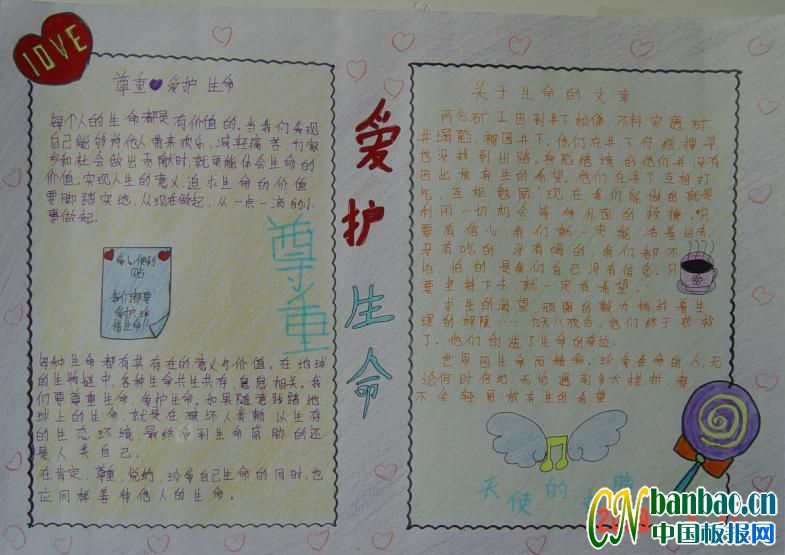 LOVE
尊重 爱护 生命
每个人的生命都是有价值的。当我们发现
自己能够为他人带来欢乐，减轻痛苦，为家
乡和社会做出贡献时，就更能体会生命的
价值。实现人生的意义，追求生命的价值
要脚踏实地，从现在做起，从一点一滴的小
事做起。
尊重
我们都要
爱护、珍
惜生命!
每种生命都有其存在的意义与价值。在地球
的生物链中，各种生命共生共存，息息相关。我
们要尊重生命，爱护生命。如果随意践踏地
球上的生命，就是在破坏人类赖以生存
的生态环境，最终受到生命威胁的还
是人类自己。
在肯定、尊重、悦纳、珍爱自己生命的同时，也
应同样善待他人的生命。
爱护生命
关于生命的文章
两名矿工因到井下检修，不料突遇矿
井塌陷，被困井下。他们在井下仔细搜寻，
也没找到出路。身陷绝境的他们并没有
因此放弃生的希望。他们在井下互相打
气，互相勉励:现在我们能做的就是
利用一切机会等待外面的救援。只
要有信心，我们就一定能活着出去。
没有吃的 没有喝的，我们都不
怕，怕的是我们自己没有信色，只
要坚持下去，就一定有希望。
求生的渴望，顽固的毅力挑战着生
理的极限……九天八夜后，他们终于获救
了。他们创造了生命的奇迹。
世界因生命而精彩。珍爱生命的人，无
论何时何地，无论遇到多大挫折，都
不会轻易放弃生的希望
天使的
CN banbao.cn
中国板报网